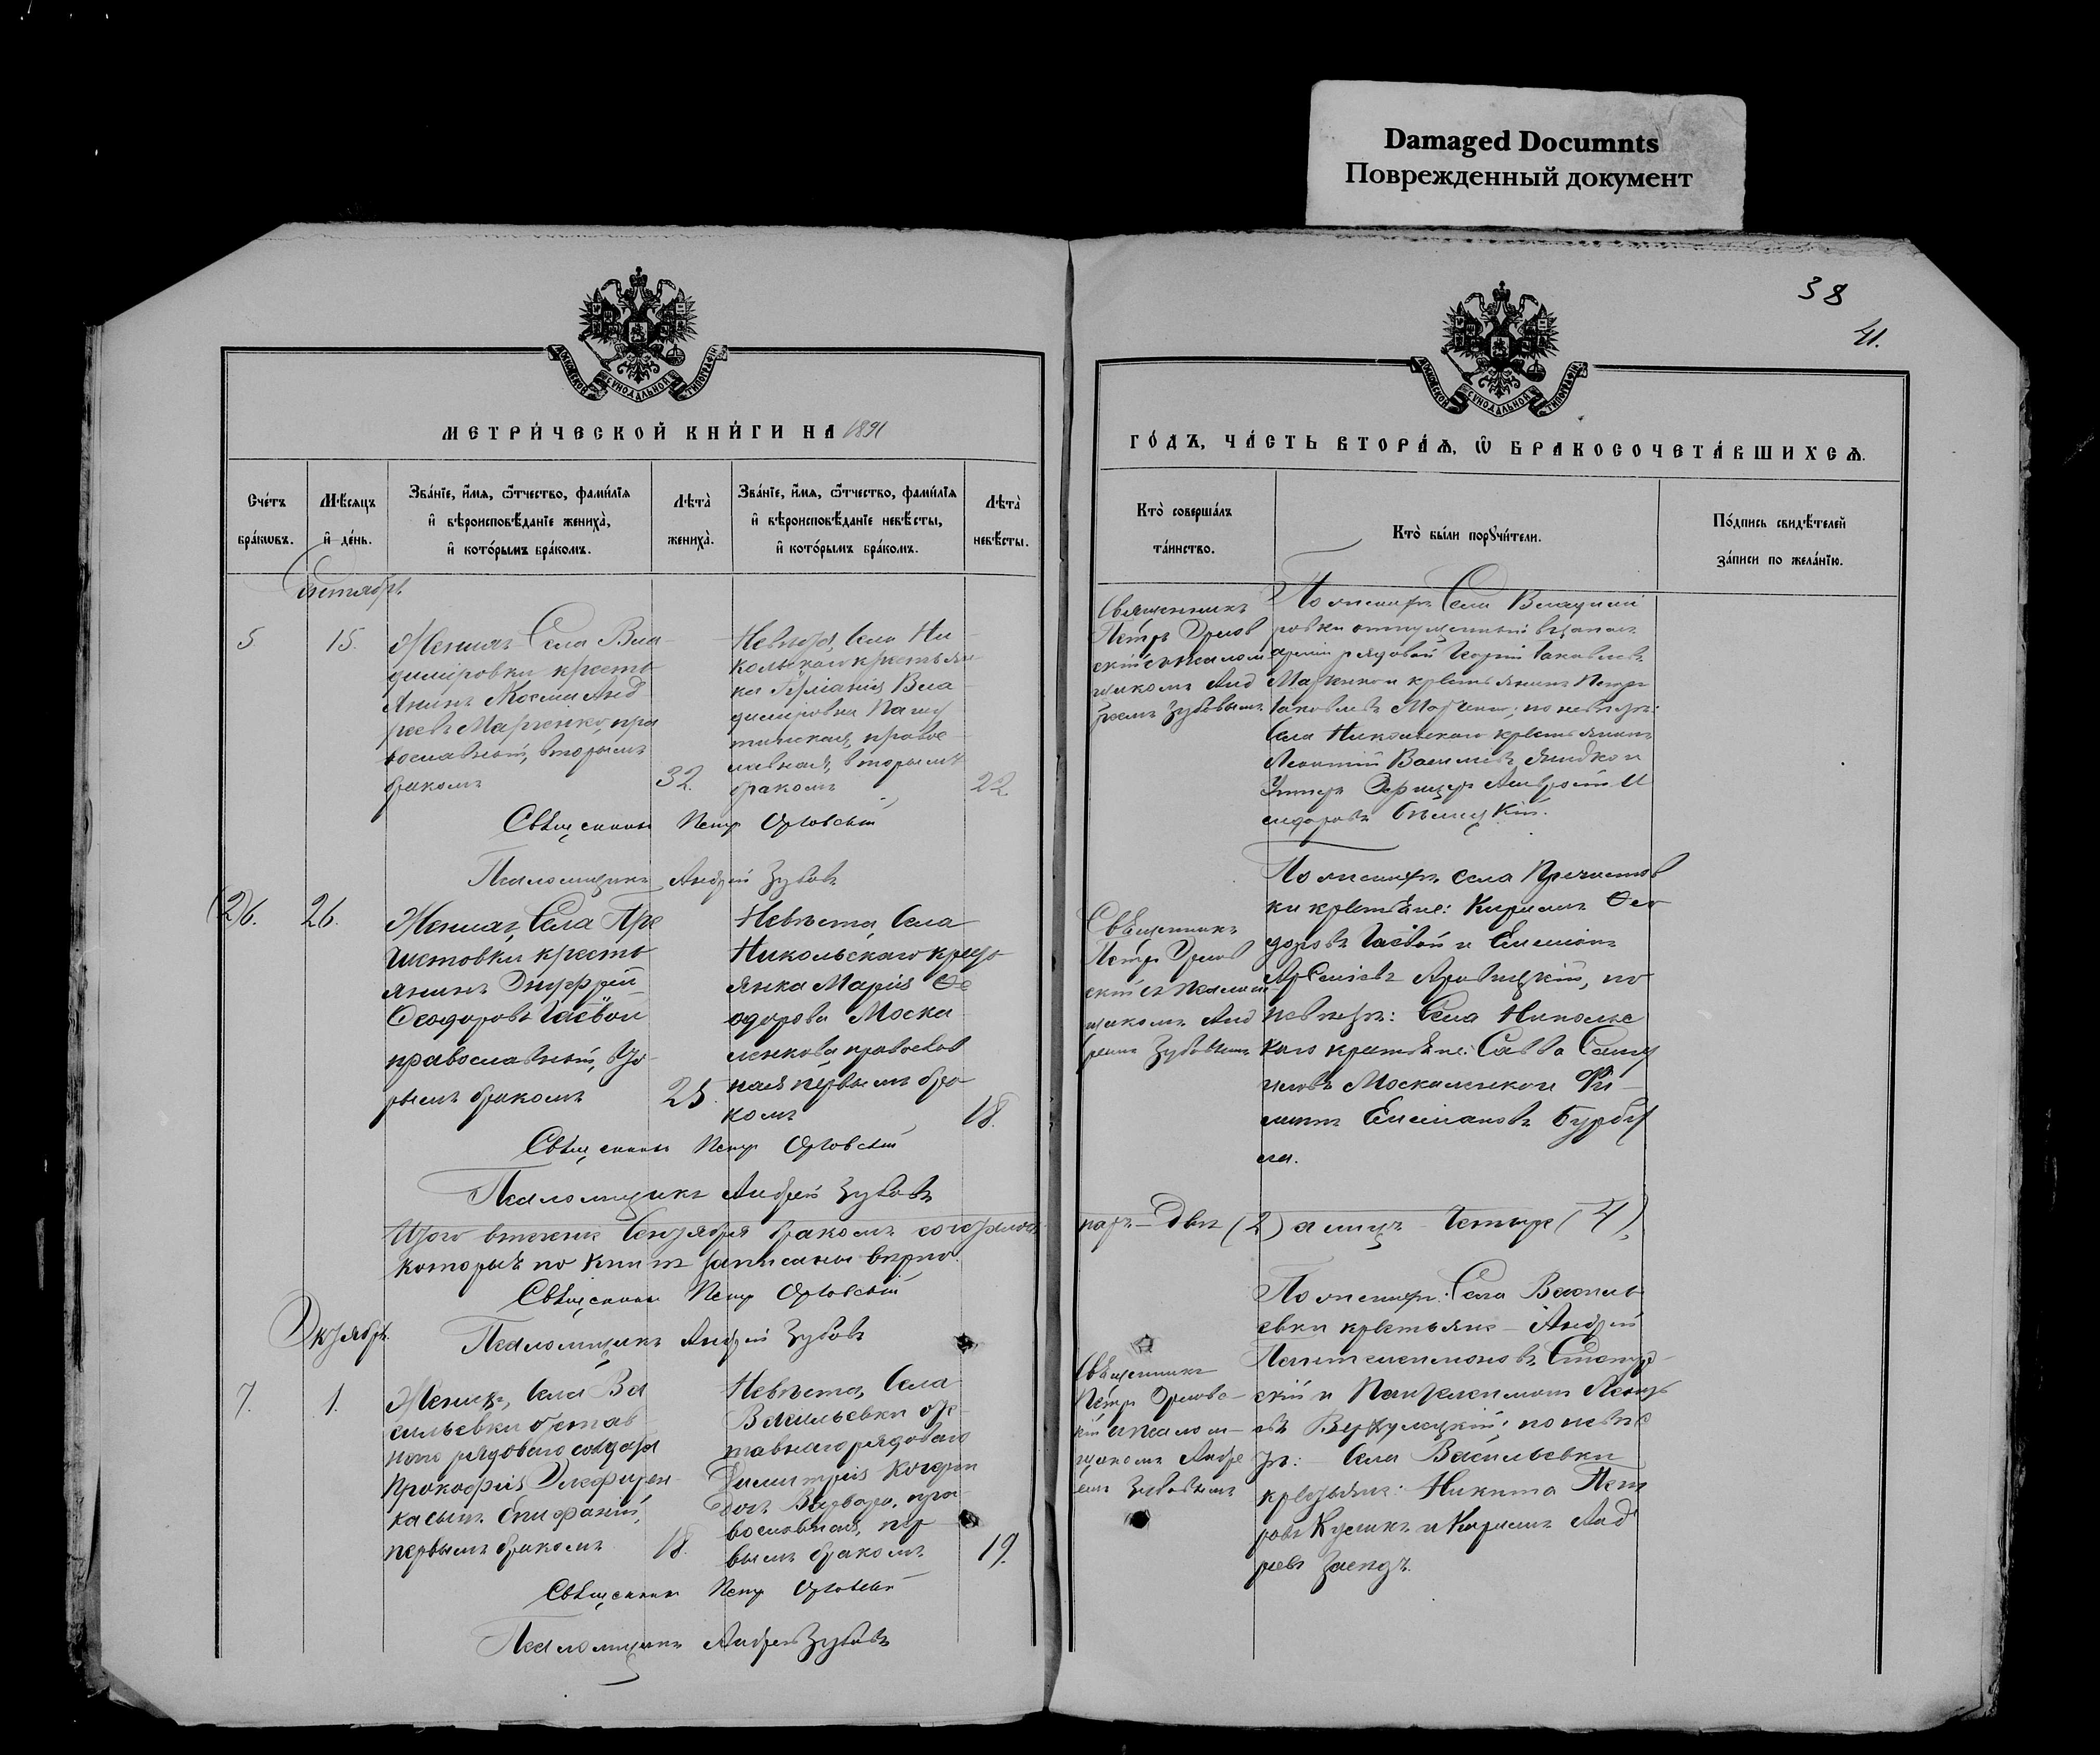 Damaged Documnts
Поврежденный документ
38
41.
МОСКОВСКОЙ СѴНОДАЛЬНОЙ ТИПОГРАФІИ
МОСКОВСКОЙ СѴНОДАЛЬНОЙ ТИПОГРАФІИ
МЕТРИ́ЧЕСКОЙ КНИ́ГИ НА 1891
ГО́ДЪ, ЧА́СТЬ ВТОРА́Ѧ, Ѡ҆ БРАКОСОЧЕТА́ВШИХСѦ.
Сче́тъ
бра́кωвъ.
Мѣ́сѧцъ
и҆ де́нь.
Зва́нїе, и҆́мѧ, ѻ҆́тчество, фами́лїѧ
и҆ вѣроисповѣ́данїе жениха̀,
и҆ кото́рымъ бра́комъ.
Лѣта̀
жениха̀.
Зва́нїе, и҆́мѧ, ѻ҆́тчество, фами́лїѧ
и҆ вѣроисповѣ́данїе невѣ́сты,
и҆ кото́рымъ бра́комъ.
Лѣта̀
невѣ́сты.
Кто̀ соверша́лъ
та́инство.
Кто̀ бы́ли порꙋчи́тели.
По́дпись свидѣ́телей
за́писи по жела́нїю.
Сентябрь
5.
15.
Женихъ Села Вла
димировки кресть
янинъ Косма Анд
реевъ Марченко, пра
вославный, вторымъ
бракомъ
32.
Невѣста, Села Ни
кольскаго крестьян
ка Владимировна
православная, вторымъ
бракомъ
22.
Священникъ
Петръ Орлов
скій съ псалом
щикомъ Анд
реемъ Зубовымъ
По женихѣ Села Владими
ровки отпущенный въ запасъ
арміи рядовой Яковлевъ
Марченко и крестьянинъ Петръ
Яковлевъ Марченко; по невѣстѣ:
Села Никольскаго крестьянинъ
Леонтій Васильевъ
Унтеръ Офицеръ Амвросій И
сидоровъ Бѣлицкій.
Священникъ Петръ Орловскій
Псаломщикъ Андрей Зубовъ
(2)6.
26.
Женихъ, Села Пре
чистовки кресть
янинъ Онуфрій
Феодоровъ Чаевой
православный, вто-
рымъ бракомъ
25.
Невѣста, Села
Никольскаго кресть
янка Марія Ѳе
одорова Моска
ленкова православ
ная первымъ бра
комъ
18.
Священникъ
Петръ Орлов
скій съ псалом
щикомъ Анд
реемъ Зубовымъ
По женихѣ села Пречистов
ки крестьяне: Кириллъ Ѳео
доровъ Чаевой и Симеонъ
Арсеніевъ, по
невѣстѣ: Села Николь
скаго крестьяне: Савва Саму
иловъ Москаленко и Фи
липпъ Емельяновъ
Священникъ Петръ Орловскій
Псаломщикъ Андрей Зубовъ
Итого втеченіе Сентября бракомъ сочеталось
паръ — двѣ (2) а лицъ четыре (4),
которые по книгѣ записаны вѣрно.
Священникъ Петръ Орловскій
Псаломщикъ Андрей Зубовъ
Октябрь.
7.
1.
Женихъ, Села Ва
сильевки отстав
ного рядоваго солдата
Прокофія
ка сынъ Епифаній,
первымъ бракомъ
18.
Невѣста, Села
Васильевки отс
тавнаго рядоваго
Димитрія
дочь Варвара, пра
вославная, пер
вымъ бракомъ
19.
Священникъ
Петръ Орловс
кій съ псалом
щикомъ Андре
емъ Зубовымъ
По женихѣ: Села Василь
евки крестьяне — Андрей
Пантелеимоновъ
скій и Пантелеимонъ
по невѣс
тѣ: Села Васильевки
крестьяне: Никита Пет
ровъ Куликъ и Кириллъ Анд
реевъ Заецъ.
Священникъ Петръ Орловскій
Псаломщикъ Андрей Зубовъ